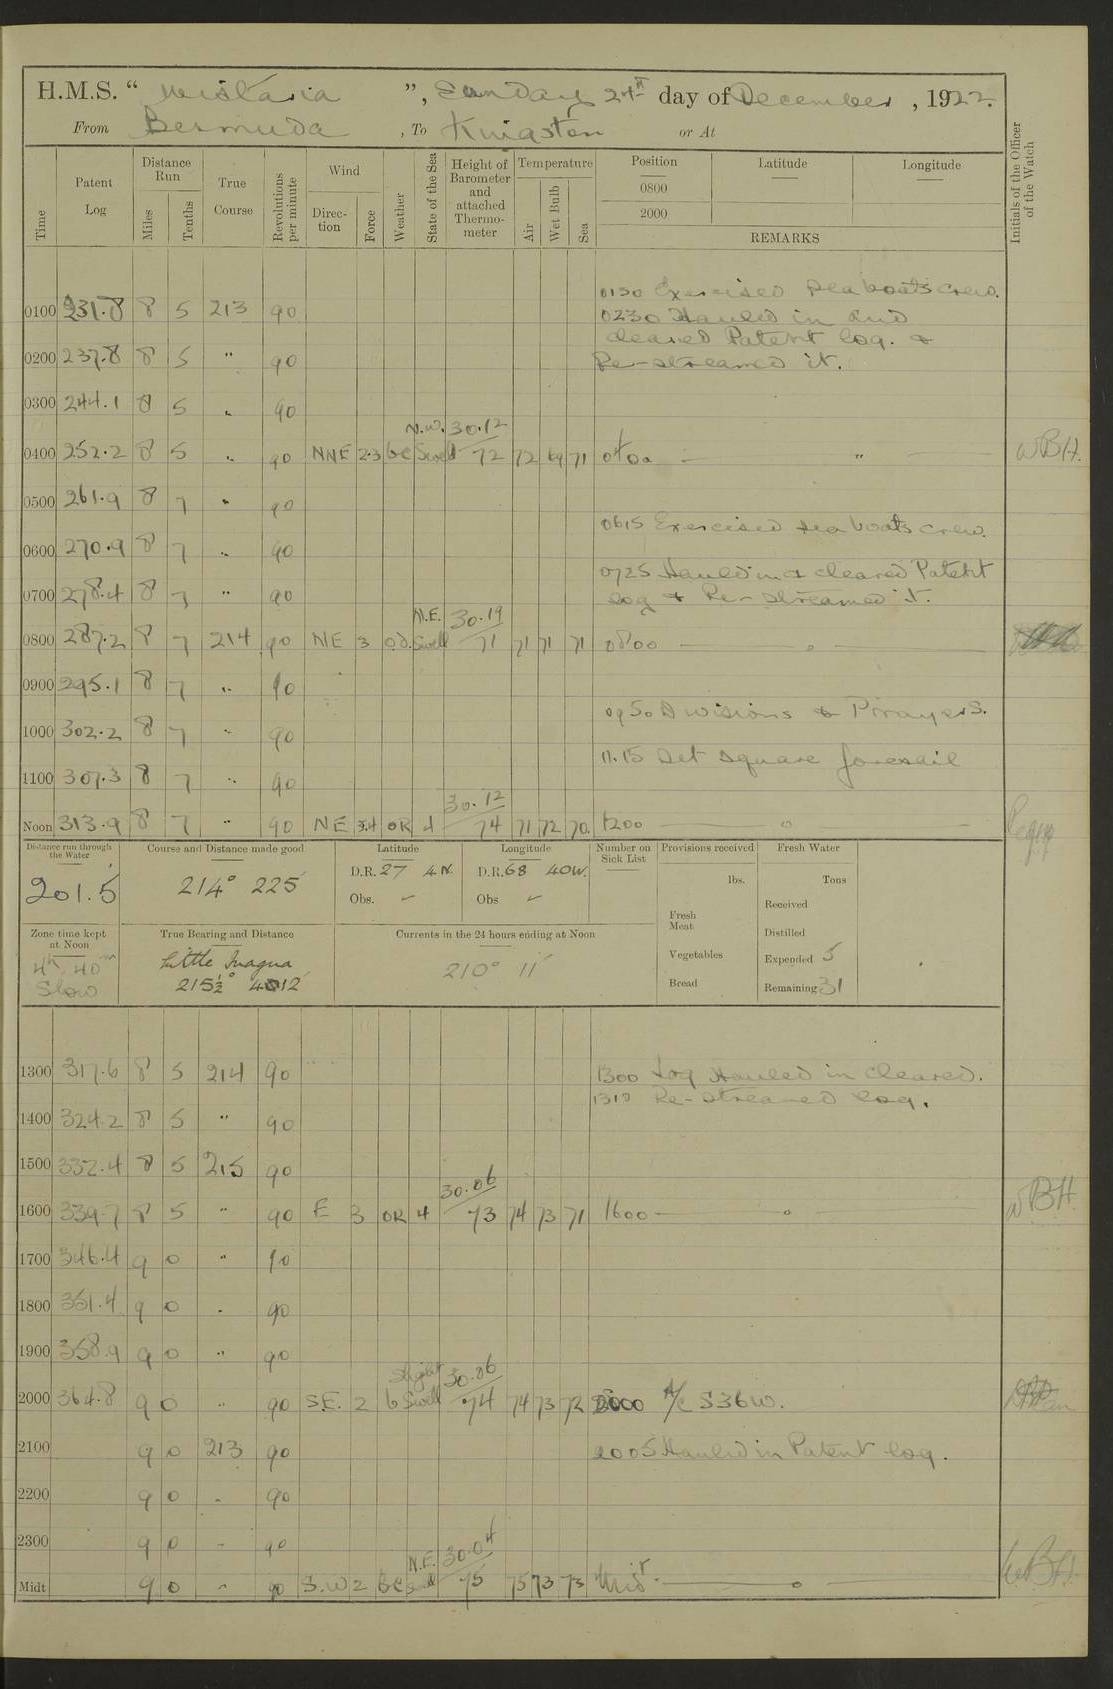 H.M.S. “ Wistaria ”, Sunday 24th day of December, 1922.
From Bermuda, To Kingston or At
Time
Patent Log
Distance Run
Miles
Tenths
True Course
Revolutions per minute
Wind
Direction
Force
Weather
State of the Sea
Height of Barometer and attached Thermometer
Temperature
Air
Wet Bulb
Sea
Position
Latitude
Longitude
0800
2000
REMARKS
Initials of the Officer of the Watch
0130 Exercised sea boats crew.
0100 231.8 8 5 213 90 0230 Hauled in and
cleared Patent log. &
0200 237.8 8 5 " 90 Re-streamed it.
0300 244.1 8 5 " 90
N.W. 30.12
0400 252.2 8 5 " 90 NNE 2.3 bc Swell 72 72 69 71 0400 " WBH.
0500 261.9 8 7 " 90
0615 Exercised sea boats crew.
0600 270.9 8 7 " 90
0725 Hauled in & cleared Patent
0700 278.4 8 7 " 90 log & Re-streamed it.
N.E. 30.19
0800 287.2 8 7 214 90 NE 3 o.d. Swell 71 71 71 71 0800
0900 295.1 8 7 " 90
0950 Divisions & Prayers.
1000 302.2 8 7 " 90
11.15 Set square foresail
1100 307.3 8 7 " 90
30.12
Noon 313.9 8 7 " 90 NE 3.4 OR 4 74 71 72 70. 1200
Distance run through the Water
201.5
Course and Distance made good
214° 225
Latitude
D.R. 27 4 N.
Obs. –
Longitude
D.R. 68 40 W.
Obs –
Number on Sick List
Provisions received
lbs.
Fresh Meat
Vegetables
Bread
Fresh Water
Tons
Received
Distilled
Expended 5
Remaining 31
Zone time kept at Noon
4h 40m
Slow
True Bearing and Distance
Little Inagua
215½° 412
Currents in the 24 hours ending at Noon
210° 11'
1300 317.6 8 5 214 90 1300 Log Hauled in cleared.
1310 Re-streamed log.
1400 324.2 8 5 " 90
1500 332.4 8 5 215 90
30.06
1600 339.7 8 5 " 90 E 3 OR 4 73 74 73 71 1600 WBH
1700 346.4 9 0 " 90
1800 351.4 9 0 " 90
1900 358.9 9 0 " 90
Slight 30.06
2000 364.8 9 0 " 90 S.E. 2 b Swell 74 74 73 72 2000 A/C S36W.
2100 9 0 213 90 2005 Hauled in Patent log.
2200 9 0 " 90
2300 9 0 " 90
N.E. 30.04
Midt 9 0 " 90 S.W 2 BC 75 75 73 73 Midt. WBH.